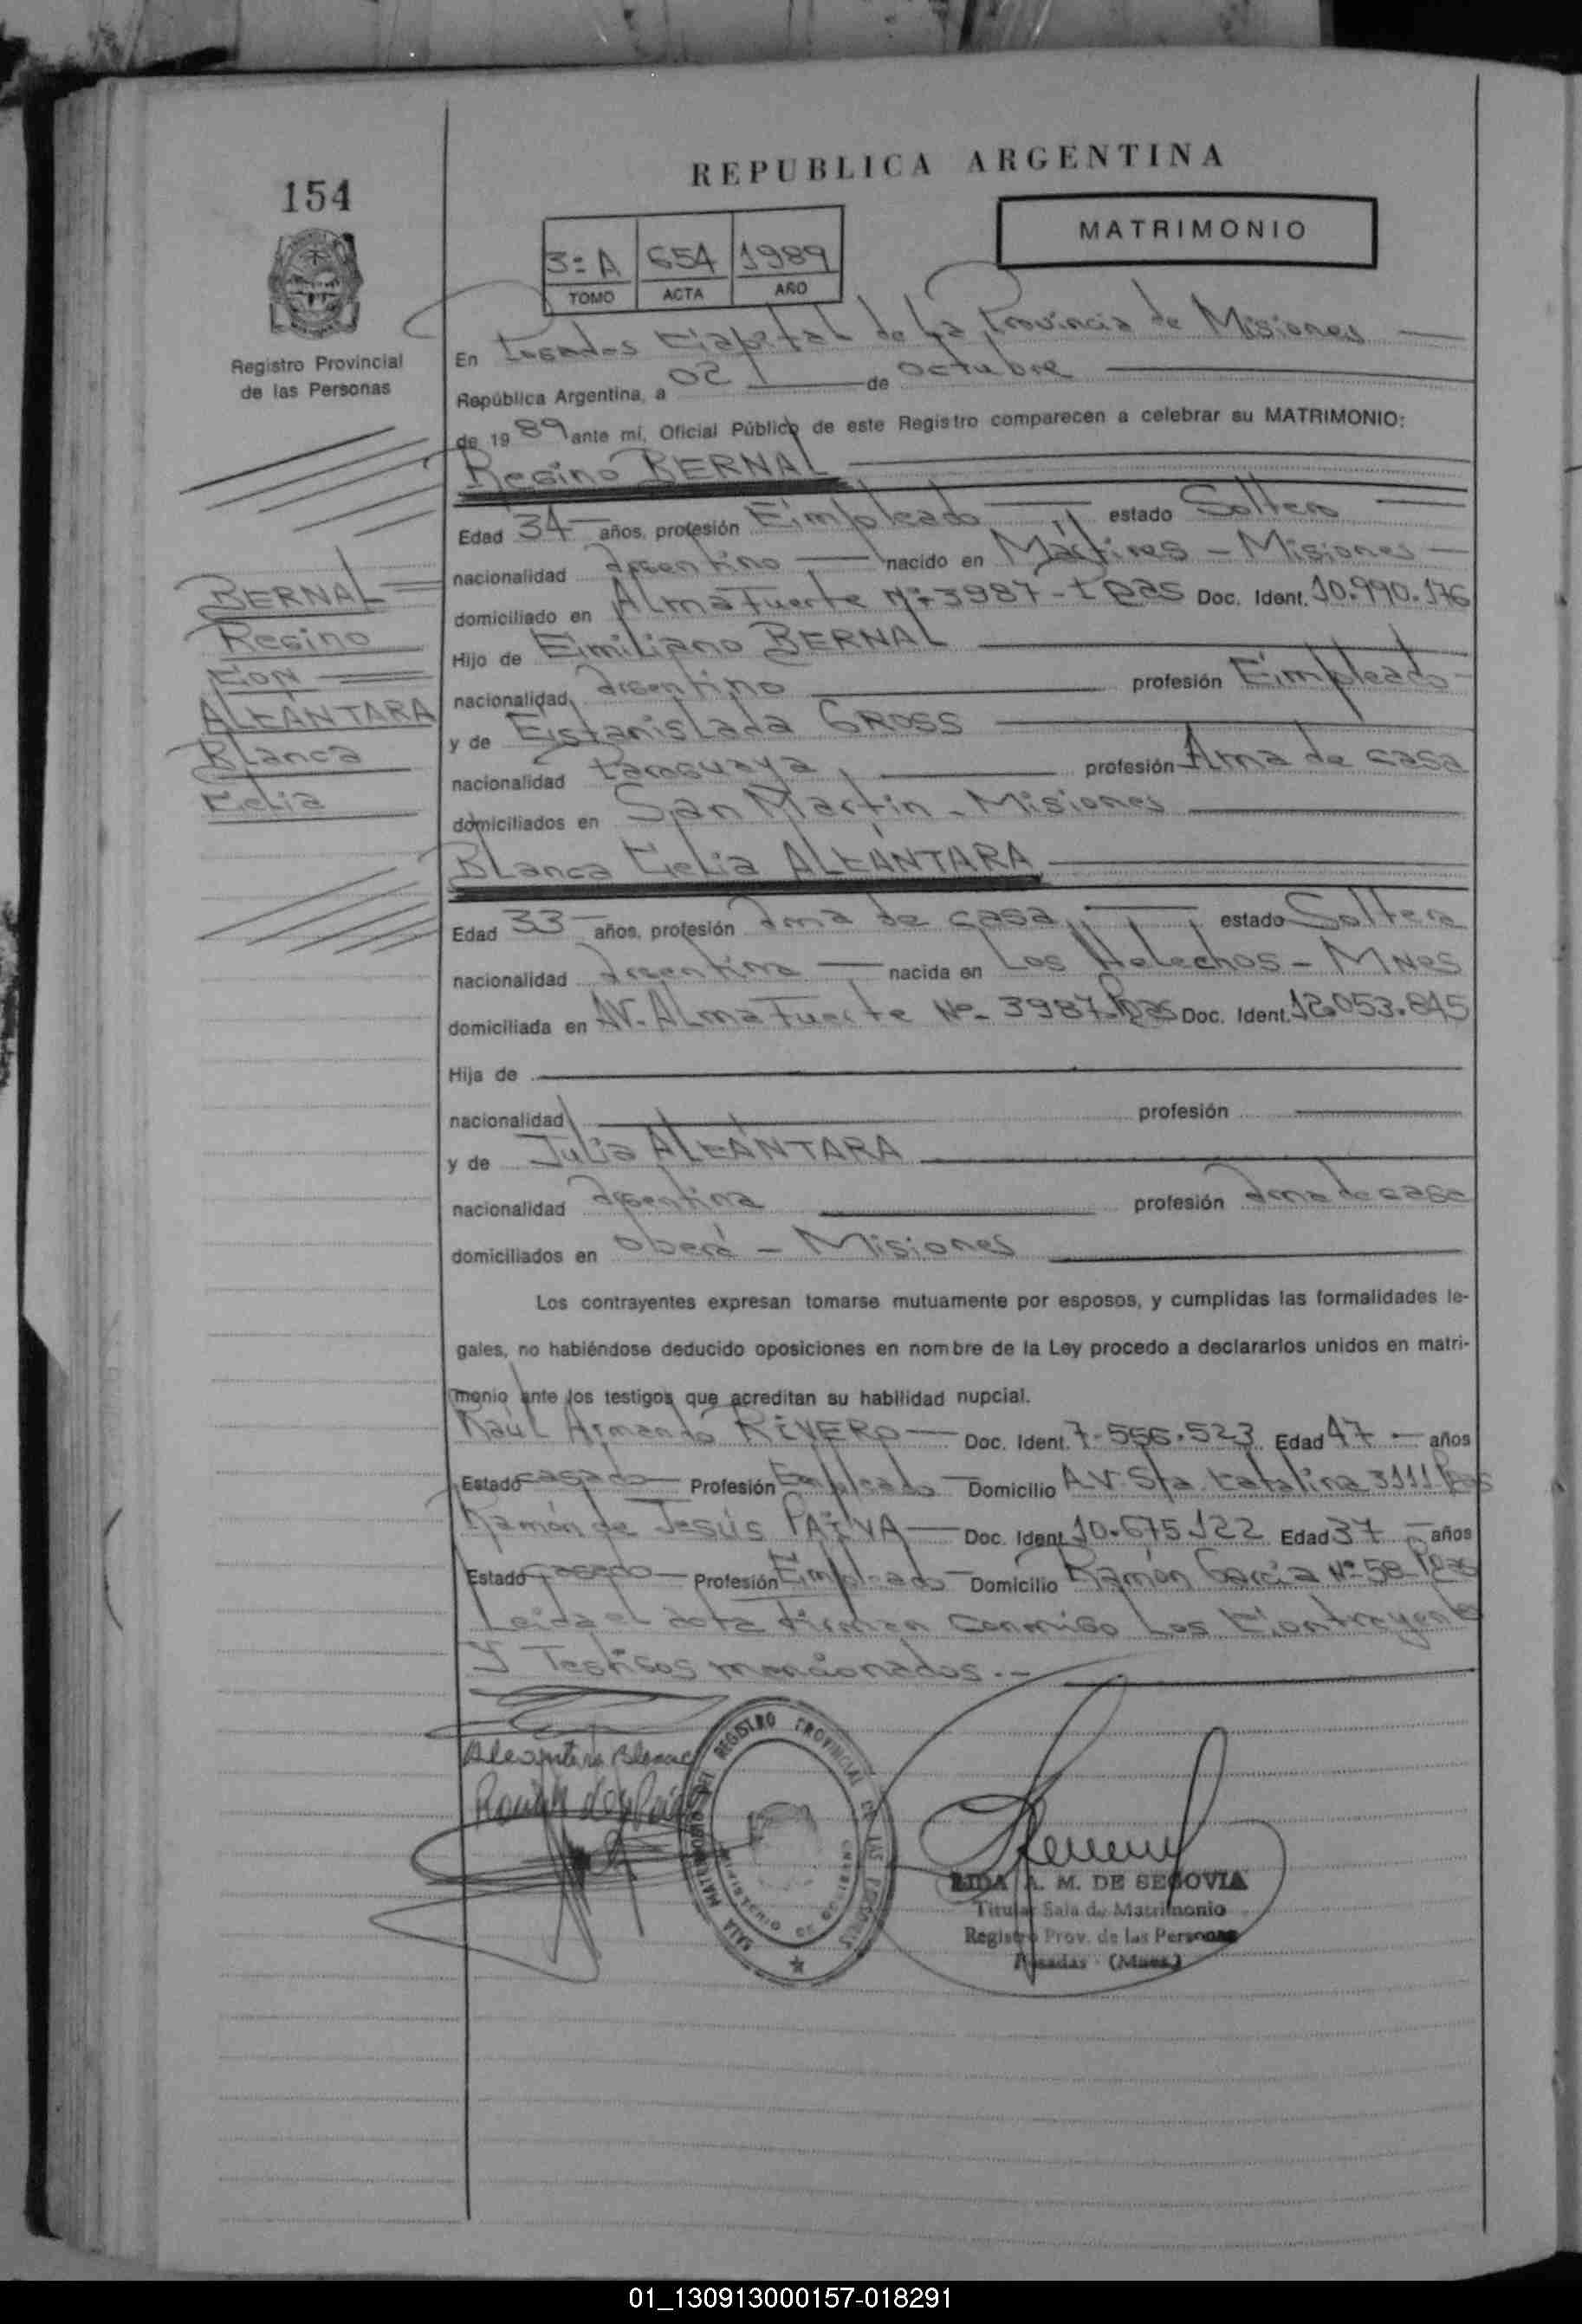 REPUBLICA ARGENTINA
154
MATRIMONIO
3ª A 654 1989
TOMO ACTA AÑO
Registro Provincial
de las Personas
En Posadas Capital de la Provincia de Misiones
República Argentina, a 02 de octubre
de 1989 ante mí, Oficial Público de este Registro comparecen a celebrar su MATRIMONIO:
Regino BERNAL
Edad 34 años, profesión Empleado estado Soltero
nacionalidad argentino nacido en Mártires - Misiones
domiciliado en Almafuerte Nº 3987 - Pdas Doc. Ident. 10.990.176
Hijo de Emiliano BERNAL
nacionalidad argentino profesión Empleado
y de Estanislada GROSS
nacionalidad Paraguaya profesión Ama de casa
domiciliados en San Martín - Misiones
BERNAL
Regino
CON
ALCÁNTARA
Blanca
Celia
Blanca Celia ALCÁNTARA
Edad 33 años, profesión ama de casa estado Soltera
nacionalidad argentina nacida en Los Helechos - Mnes
domiciliada en AV. Almafuerte Nº 3987 Pdas Doc. Ident. 12.053.815
Hija de
nacionalidad profesión
y de Julia ALCÁNTARA
nacionalidad argentina profesión ama de casa
domiciliados en Oberá - Misiones
Los contrayentes expresan tomarse mutuamente por esposos, y cumplidas las formalidades le-
gales, no habiéndose deducido oposiciones en nombre de la Ley procedo a declararlos unidos en matri-
monio ante los testigos que acreditan su habilidad nupcial.
Raúl Armando RIVERO Doc. Ident. 7.556.523 Edad 47 años
Estado casado Profesión Empleado Domicilio AV. Sta. Catalina 3111 Pdas
Ramón de Jesús PAIVA Doc. Ident. 10.675.122 Edad 37 años
Estado casado Profesión Empleado Domicilio Ramón García Nº 58 Pdas
Leida el acta firman conmigo los Contrayentes
Y Testigos mencionados.-
Alcantara Blanca
SALA MATRIMONIO DEL REGISTRO PROVINCIAL DE LAS PERSONAS
MINISTERIO DE GOBIERNO
A. M. DE SEGOVIA
Titular Sala de Matrimonio
Registro Prov. de las Personas
Posadas (Mnes.)
01_130913000157-018291